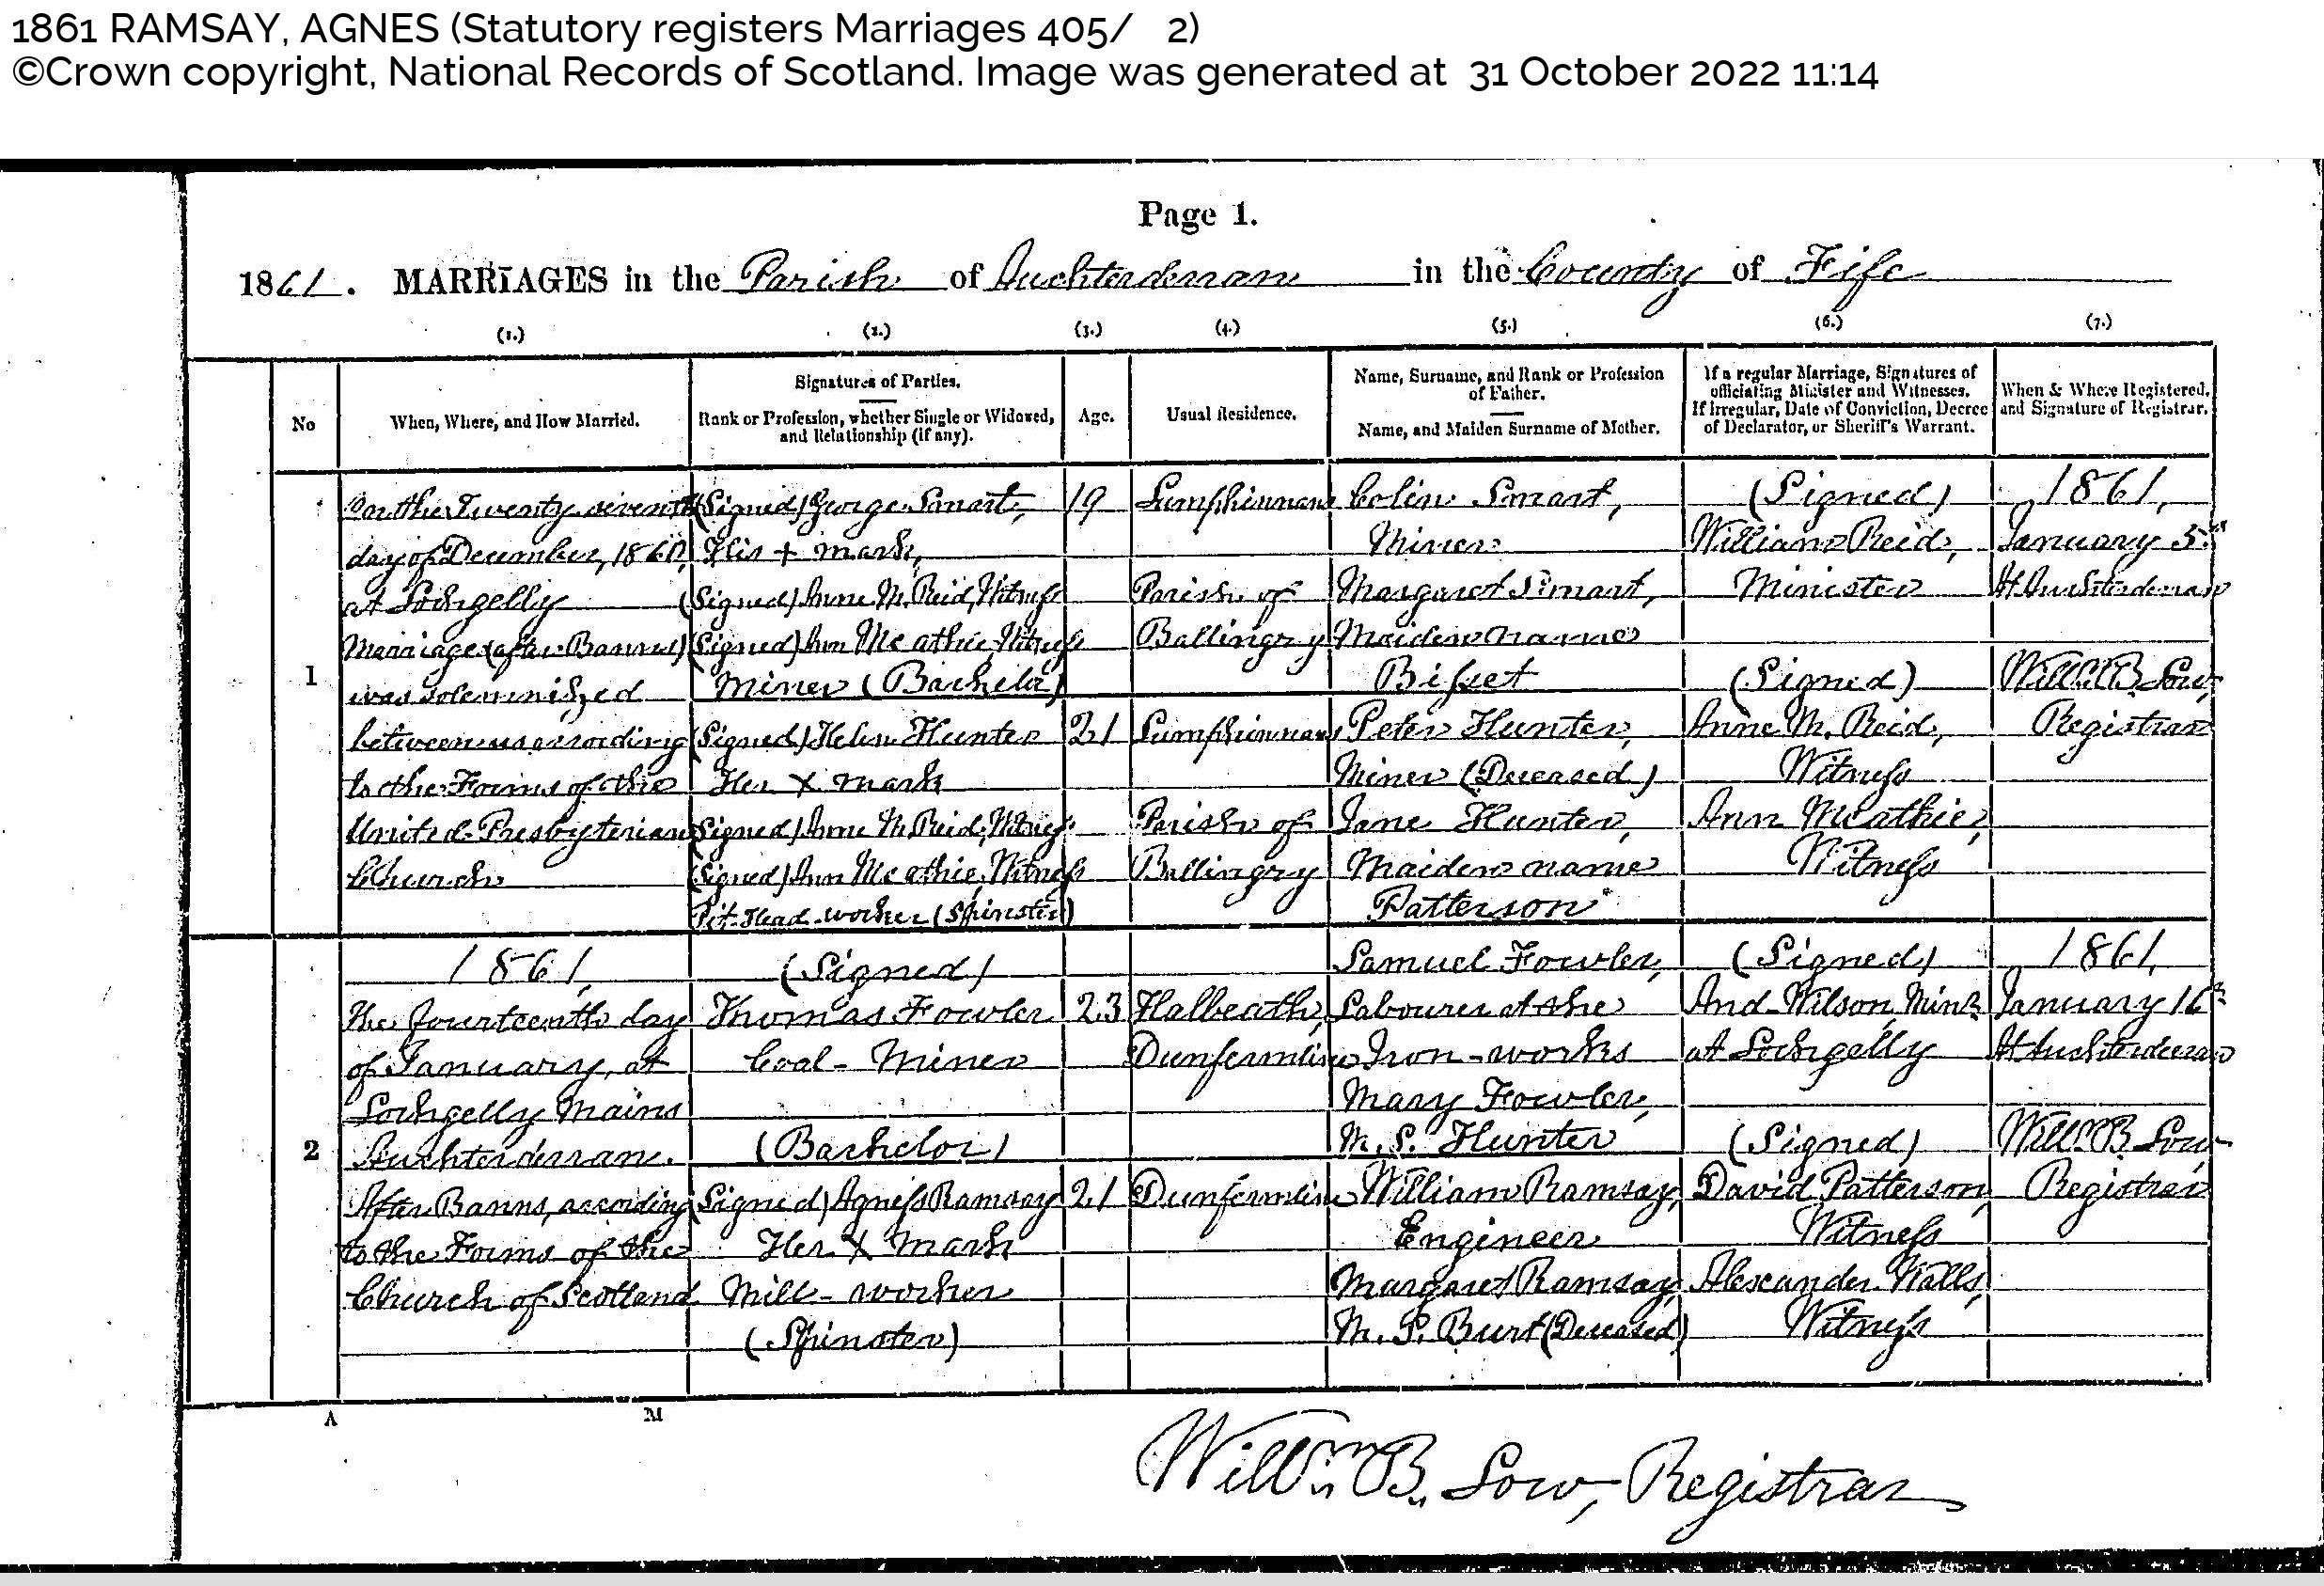 1861 RAMSAY, AGNES (Statutory registers Marriages 405/ 2)
©Crown copyright, National Records of Scotland. Image was generated at 31 October 2022 11:14
Page 1.
1861. MARRIAGES in the Parish of Auchterderran in the County of Fife
(1.) (2.) (3.) (4.) (5.) (6.) (7.)
No
When, Where, and How Married.
Signatures of Parties.
Rank or Profession, whether Single or Widowed,
and Relationship (if any).
Age.
Usual Residence.
Name, Surname, and Rank or Profession
of Father.
Name, and Maiden Surname of Mother.
If a regular Marriage, Signatures of
officiating Minister and Witnesses.
If Irregular, Date of Conviction, Decree
of Declarator, or Sheriff's Warrant.
When & Where Registered,
and Signature of Registrar.
1
On the Twenty seventh
day of December, 1860,
at Lochgelly
Marriage (after Banns)
was solemnized
between us according
to the Forms of the
United Presbyterian
Church
(Signed) George Smart,
His + mark,
(Signed) Anne M. Reid, Witness
(Signed) Ann McAthie, Witness
Miner (Bachelor)
(Signed) Helen Hunter
Her X mark
(Signed) Anne M. Reid, Witness
(Signed) Ann McAthie, Witness
Pit-Head-worker (Spinster)
19
21
Lumphinnans
Parish of
Ballingry
Lumphinnans
Parish of
Ballingry
Colin Smart,
Miner
Margaret Smart,
Maiden name
Bisset
Peter Hunter,
Miner (Deceased)
Jane Hunter,
Maiden name
Patterson
(Signed)
William Reid,
Minister
(Signed)
Anne M. Reid,
Witness
Ann McAthie,
Witness
1861,
January 5th
At Auchterderran
Willm. B. Low,
Registrar
2
1861,
the fourteenth day
of January, at
Lochgelly Mains
Auchterderran.
After Banns, according
to the Forms of the
Church of Scotland
(Signed)
Thomas Fowler
Coal-Miner
(Bachelor)
(Signed) Agness Ramsay
Her X mark
Mill-worker
(Spinster)
23
21
Halbeath,
Dunfermline
Dunfermline
Samuel Fowler,
Labourer at the
Iron-works
Mary Fowler,
M.S. Hunter
William Ramsay,
Engineer
Margaret Ramsay,
M.S. Burt (Deceased)
(Signed)
And. Wilson, Minr.
at Lochgelly
(Signed)
David Patterson,
Witness
Alexander Walls,
Witness
1861,
January 16th
At Auchterderran
Willm. B. Low
Registrar
A M
Willm. B. Low, Registrar